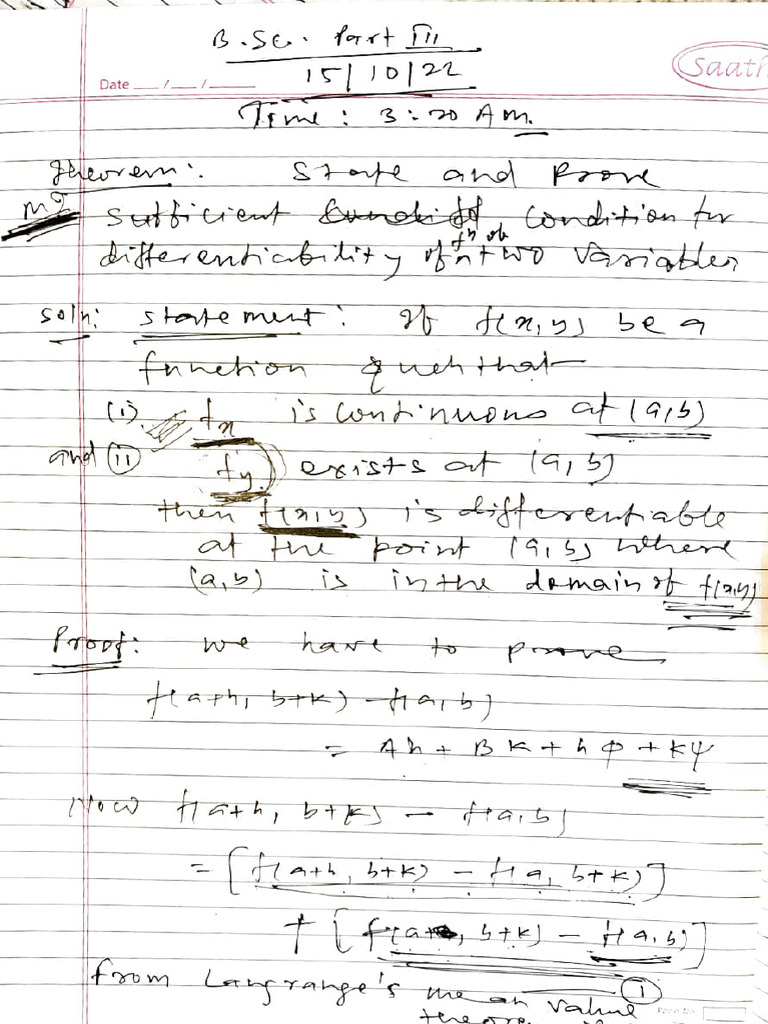 B.Sc. Part III
Saath
Date __/__/__ 15/10/22
Time: 3:20 AM.
Theorem: State and Prove
sufficient condition for
differentiability of fn of two variables
Soln: Statement: If f(x,y) be a
function such that
(i) fx is continuous at (a,b)
and (ii) fy exists at (a,b)
then f(x,y) is differentiable
at the point (a,b) where
(a,b) is in the domain of f(x,y)
Proof: we have to prove
f(a+h, b+k) - f(a,b)
= Ah + Bk + hφ + kψ
Now f(a+h, b+k) - f(a,b)
= [f(a+h, b+k) - f(a, b+k)]
+ [f(a, b+k) - f(a,b)]
(1)
from Langrange's mean value